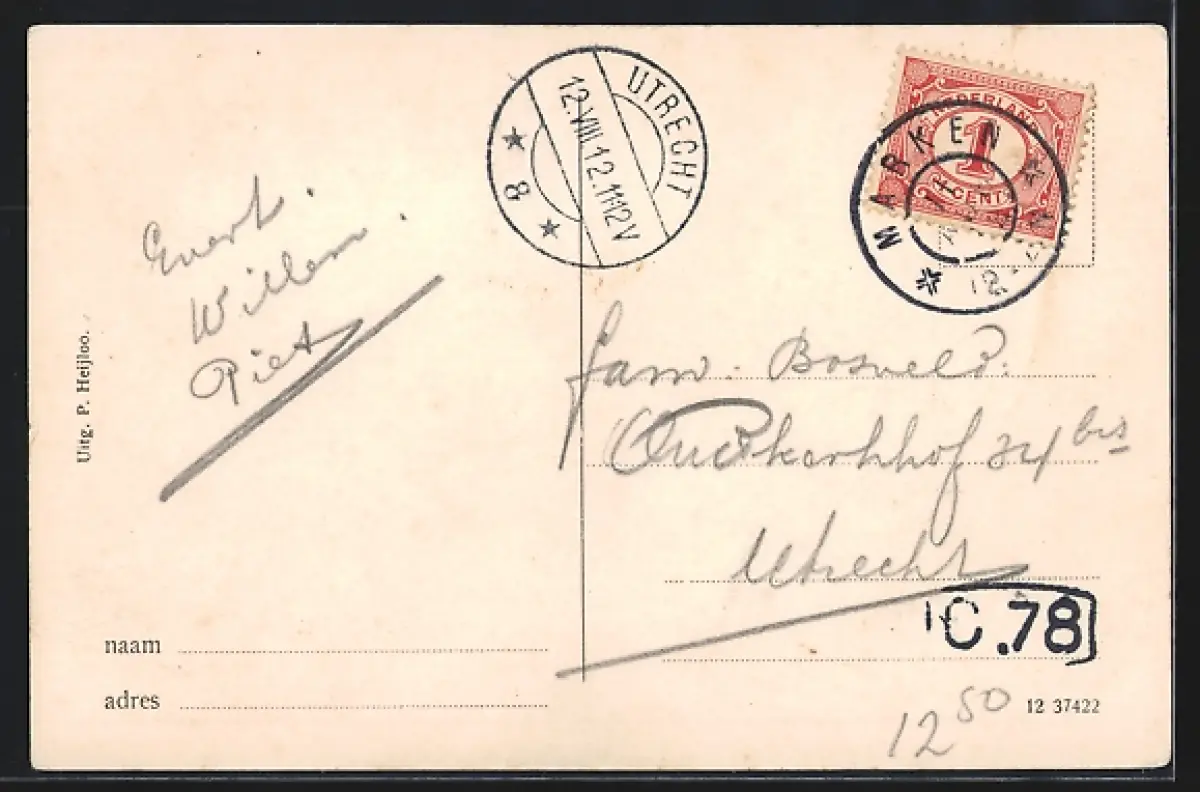 UTRECHT
12.VIII.12.11-12V
8
NEDERLAND
1
CENT
MARKEN
12
Evert.
Willem.
Piet
Uitg. P. Heijloo.
fam. Bosveld.
Oudkerkhof 34 bis
Utrecht
C.78
naam
adres
12 37422
12 50